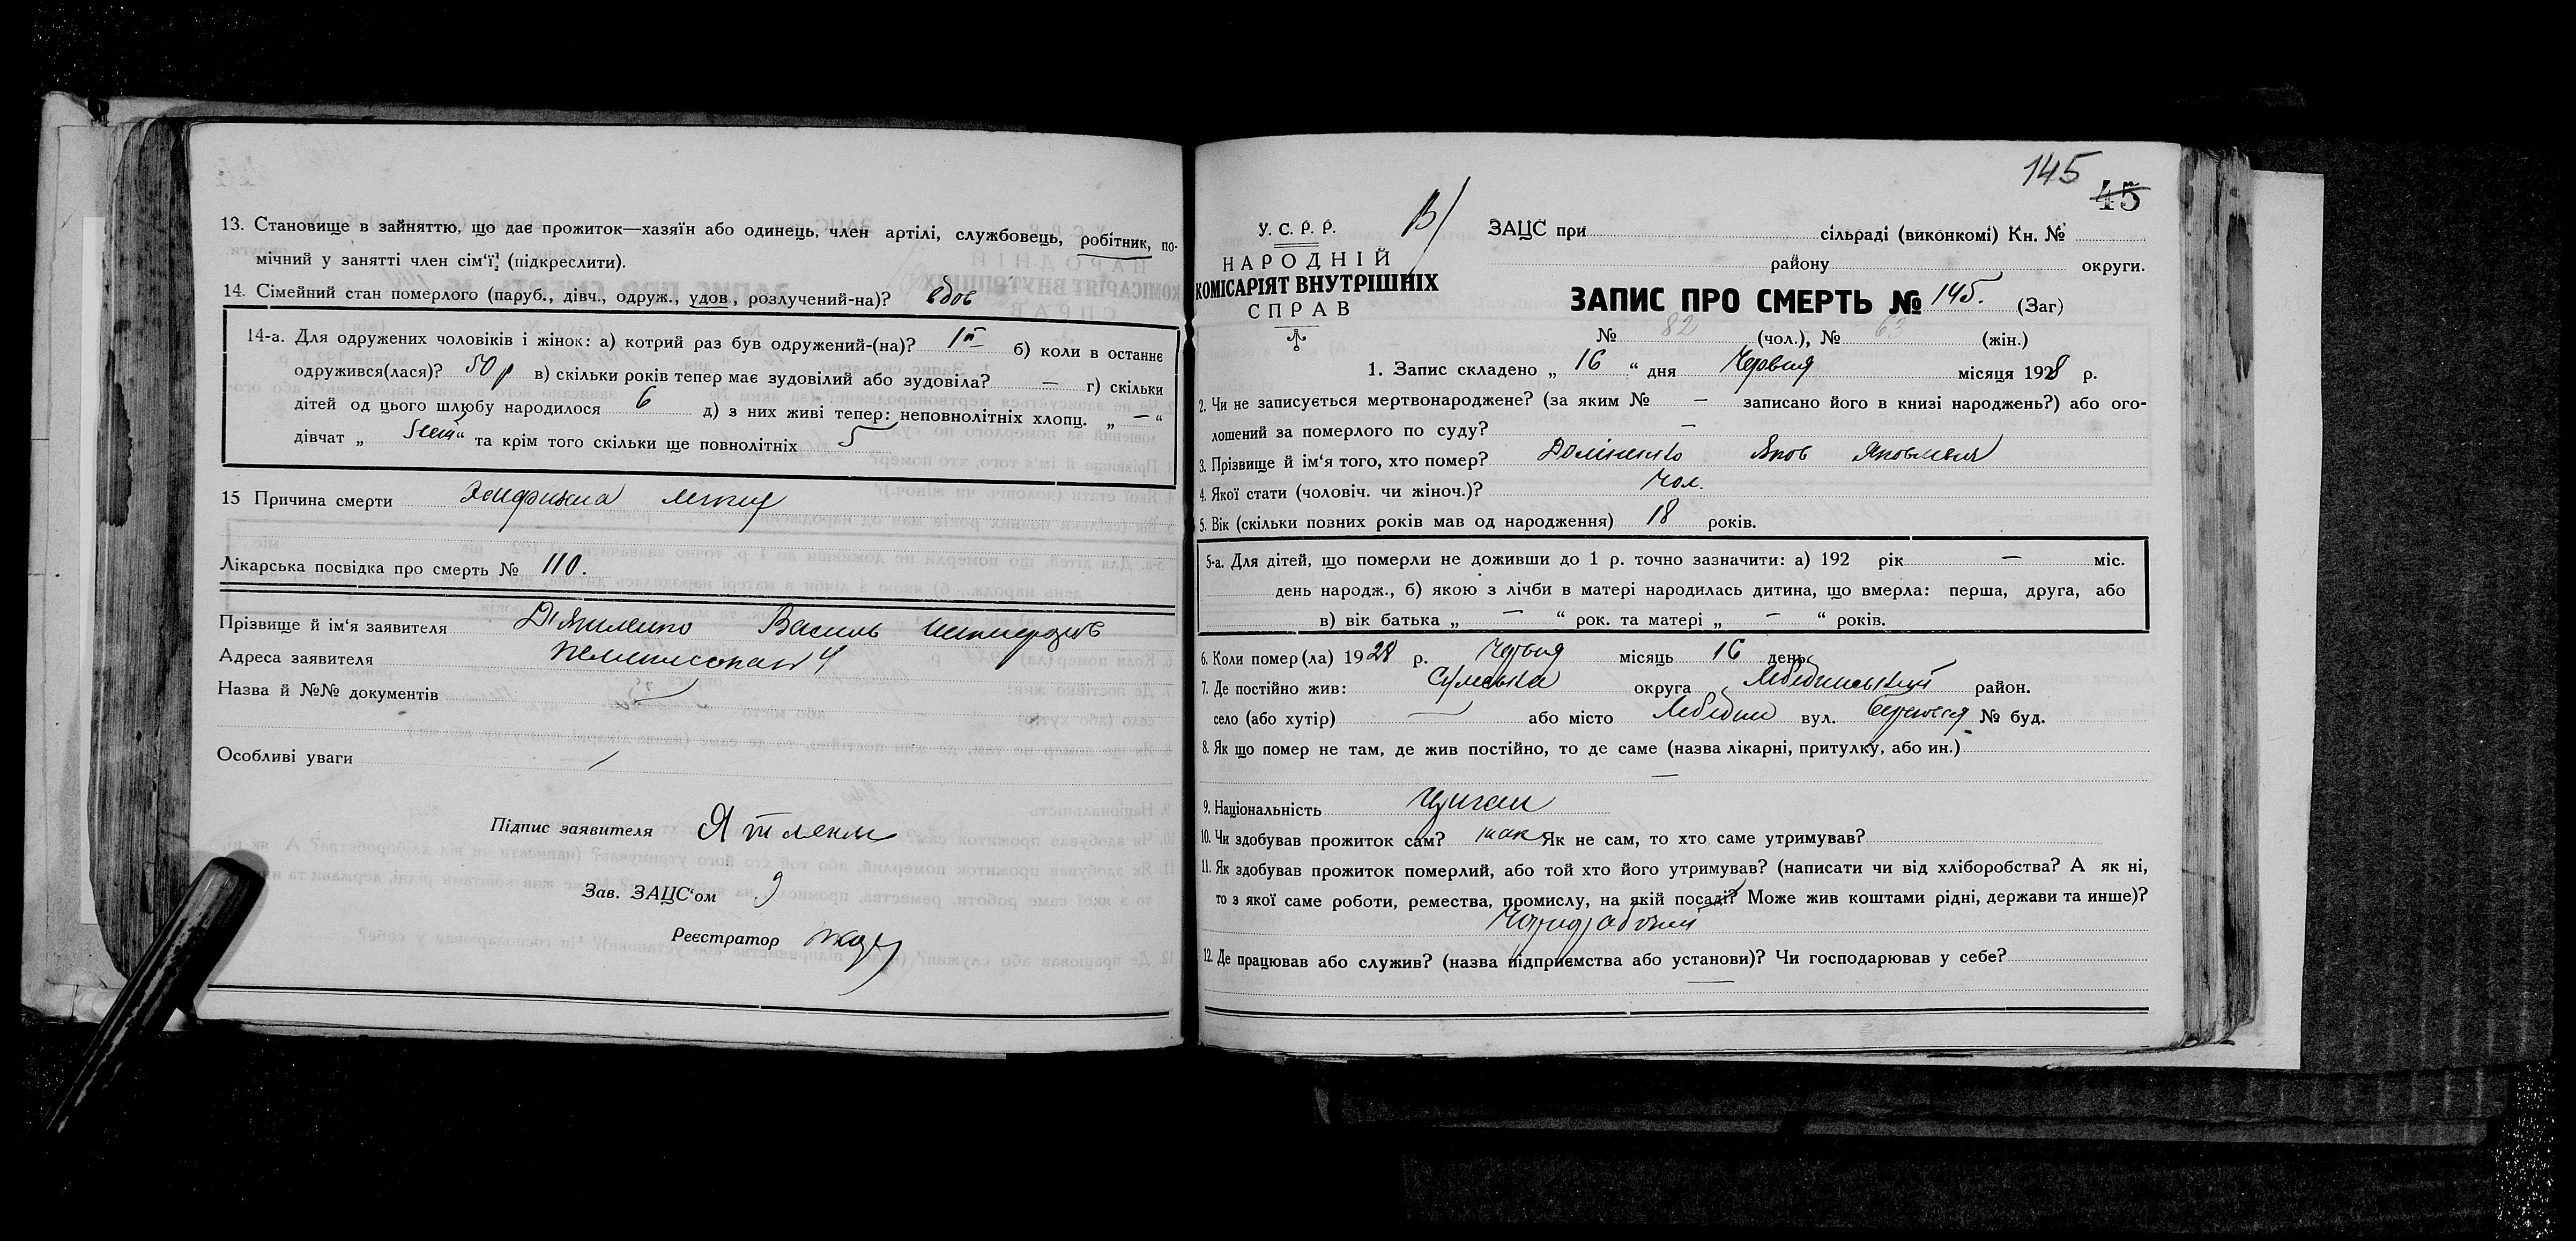 13. Становище в зайняттю, що дає прожиток—хазяїн або одинець, член артілі, службовець, робітник, по-
мічний у занятті член сім'ї (підкреслити).
14. Сімейний стан померлого (паруб., дівч., одруж., удов., розлучений-на)? вдов
14-а. Для одружених чоловіків і жінок: а) котрий раз був одружений-(на)? 1й б) коли в останнє
одружився(лася)? 50 р в) скільки років тепер має зудовілий або зудовіла? — г) скільки
дітей од цього шлюбу народилося 6 д) з них живі тепер: неповнолітніх хлопц. „ — “
дівчат „ “ та крім того скільки ще повнолітніх 5
15 Причина смерти
Лікарська посвідка про смерть № 110.
Прізвище й ім'я заявителя Василь
Адреса заявителя
Назва й №№ документів —
Особливі уваги
Підпис заявителя
Зав. ЗАЦС'ом
Реєстратор
145
45
У. С. Р. Р.
НАРОДНІЙ
КОМІСАРІЯТ ВНУТРІШНІХ
СПРАВ
ЗАЦС при сільраді (виконкомі) Кн. №
району округи.
ЗАПИС ПРО СМЕРТЬ № 145. (Заг)
№ 82 (чол.), № 63 (жін.)
1. Запис складено „ 16 “ дня Червня місяця 1928 р.
2. Чи не записується мертвонароджене? (за яким № — записано його в книзі народжень?) або ого-
лошений за померлого по суду? —
3. Прізвище й ім'я того, хто помер? Яков
4. Якої стати (чоловіч. чи жіноч.)? чол.
5. Вік (скільки повних років мав од народження) 18 років.
5-а. Для дітей, що померли не доживши до 1 р. точно зазначити: а) 192 рік — міс.
день народж., б) якою з лічби в матері народилась дитина, що вмерла: перша, друга, або
в) вік батька „ — “ рок. та матері „ — “ років.
6. Коли помер(ла) 1928 р. Червня місяць 16 день
7. Де постійно жив: Сумська округа Лебединський район.
село (або хутір) — або місто Лебедин вул. № буд.
8. Як що помер не там, де жив постійно, то де саме (назва лікарні, притулку, або ин.)
—
9. Національність Циган
10. Чи здобував прожиток сам? так Як не сам, то хто саме утримував?
11. Як здобував прожиток померлий, або той хто його утримував? (написати чи від хліборобства? А як ні,
то з якої саме роботи, ремества, промислу, на якій посаді? Може жив коштами рідні, держави та инше)?
Чорнорабочий
12. Де працював або служив? (назва підприємства або установи)? Чи господарював у себе?
—